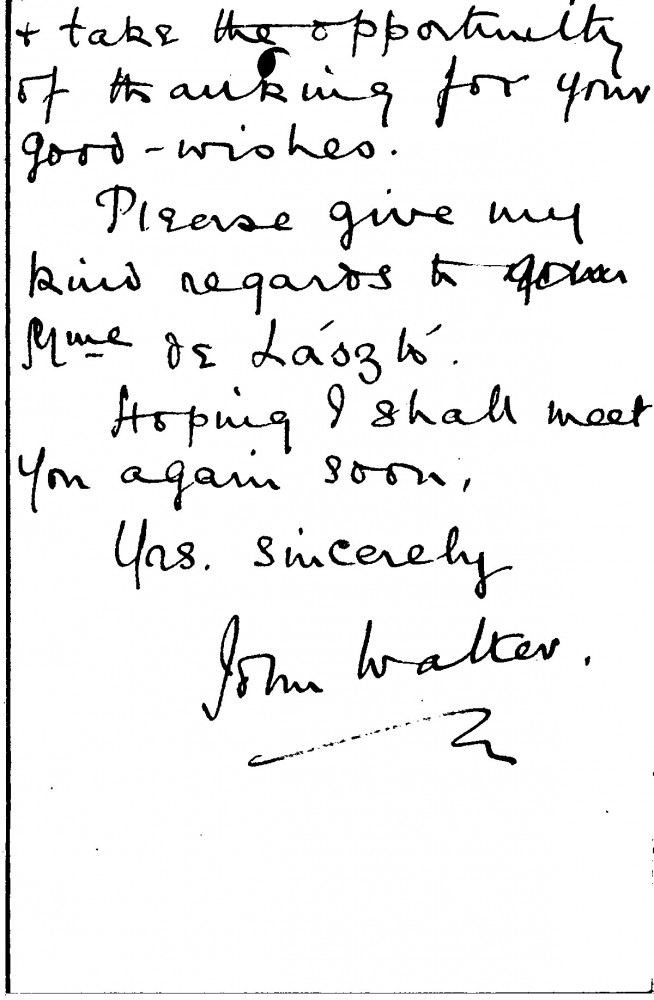 + take the opportunity
of thanking for your
good-wishes.
Please give my
kind regards to
Mme de László.
Hoping I shall meet
you again soon,
Yrs. sincerely
John Walter.